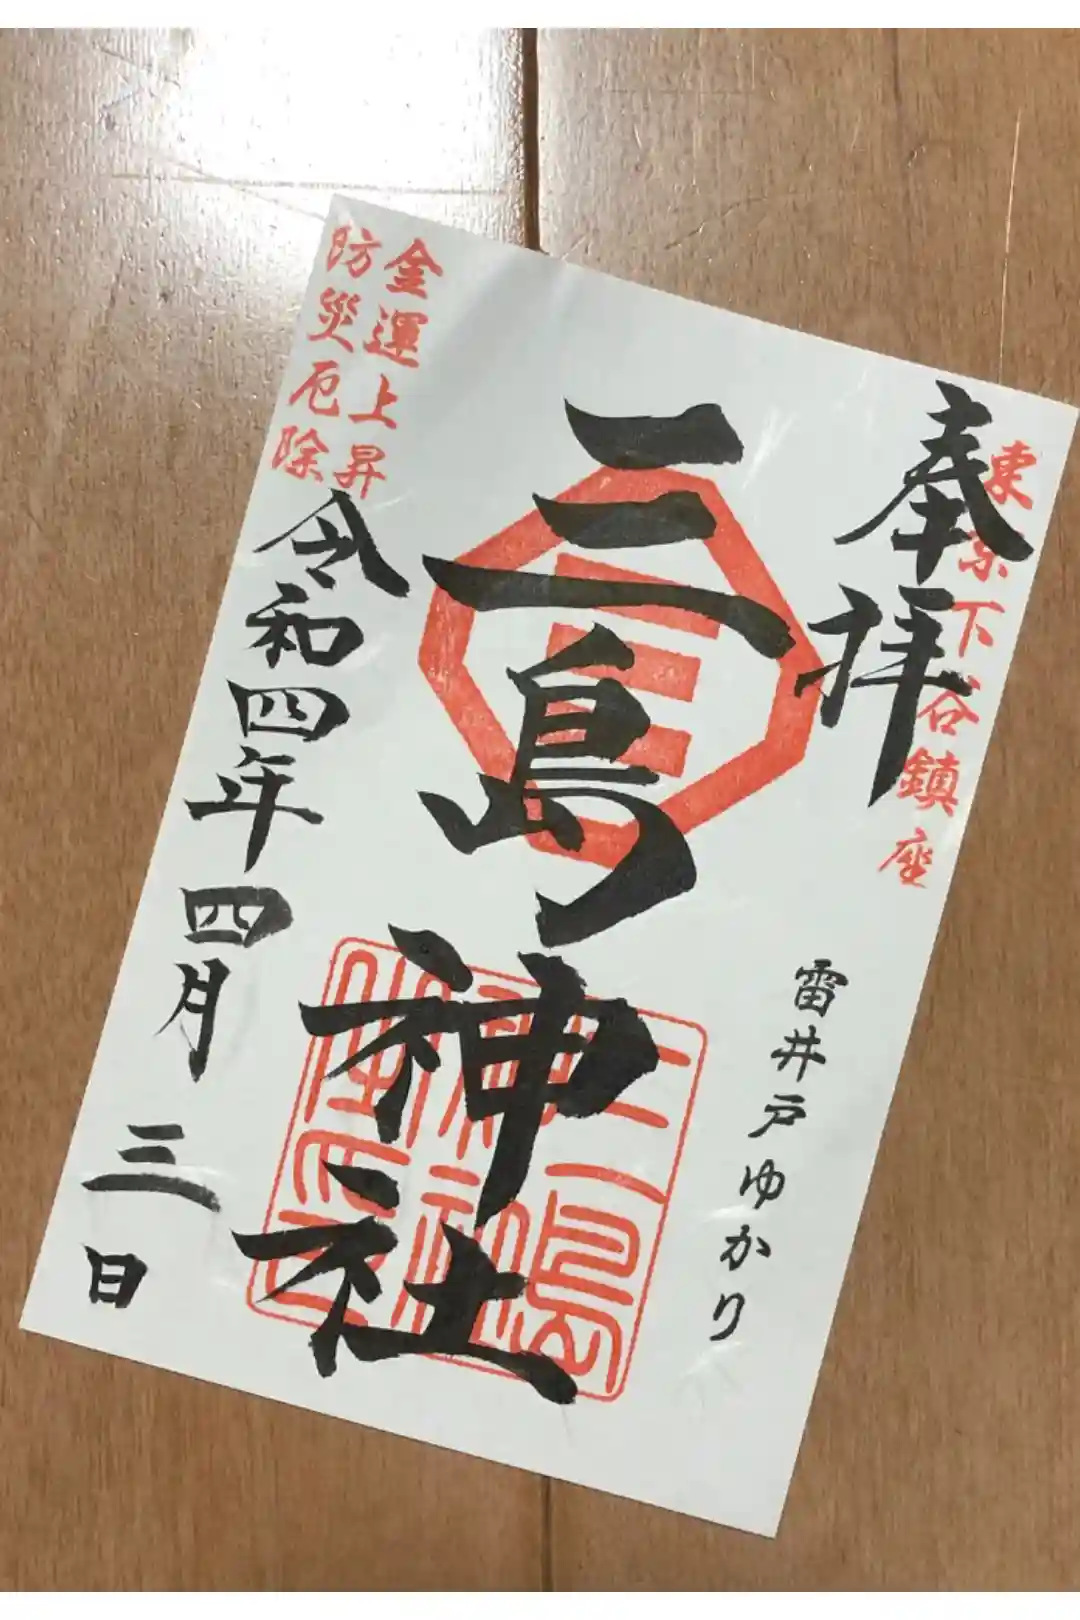 奉拝
東京下谷鎮座
雷井戸ゆかり
三島神社
三
三島
神社
之印
金運上昇
防災厄除
令和四年四月三日